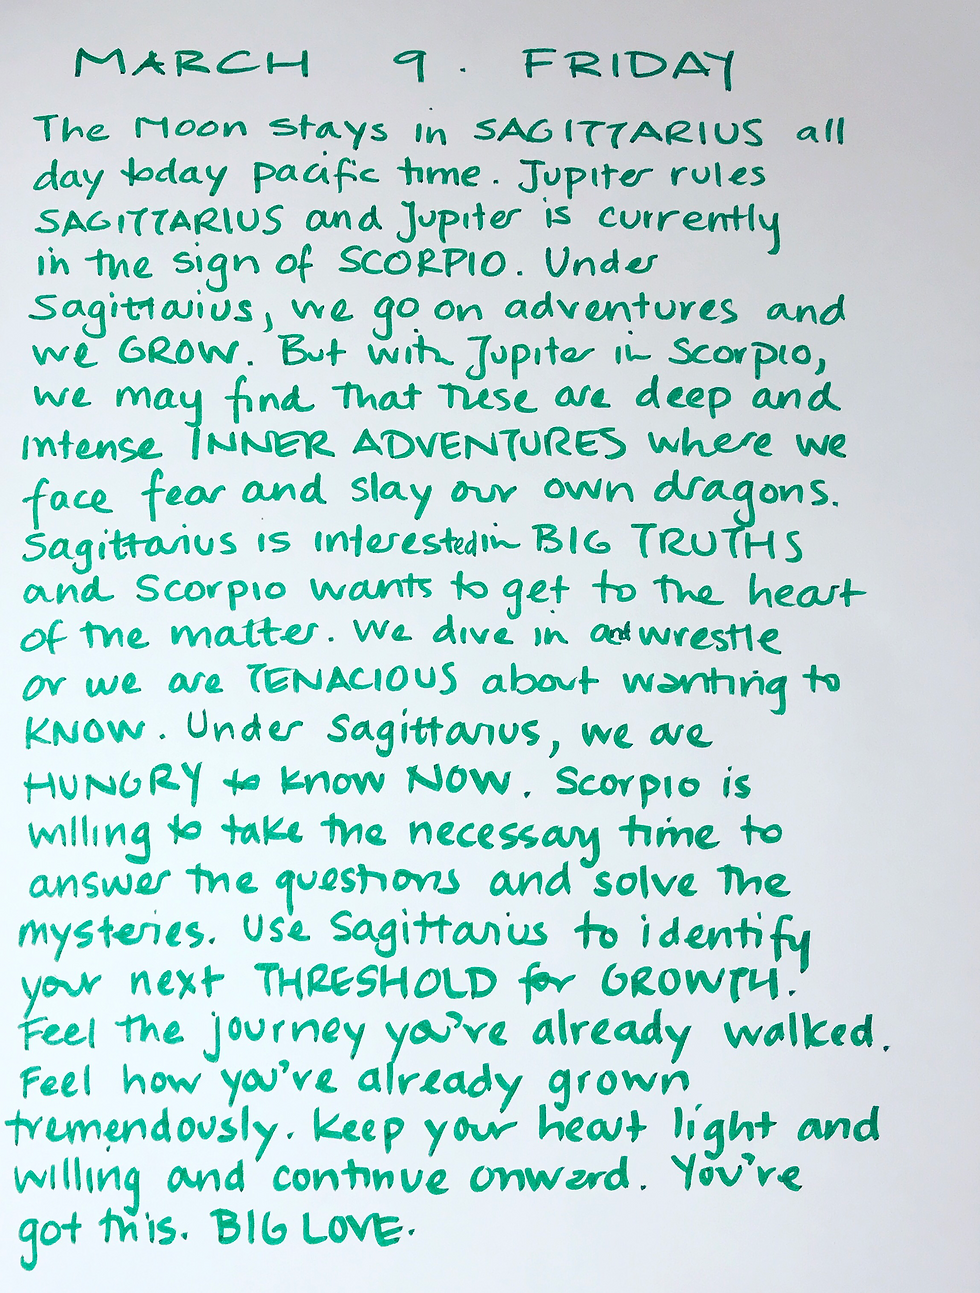 MARCH 9. FRIDAY
The Moon stays in SAGITTARIUS all
day today pacific time. Jupiter rules
SAGITTARIUS and Jupiter is currently
in the sign of SCORPIO. Under
Sagittarius, we go on adventures and
we GROW. But with Jupiter in Scorpio,
we may find that these are deep and
intense INNER ADVENTURES where we
face fear and slay our own dragons.
Sagittarius is interested in BIG TRUTHS
and Scorpio wants to get to the heart
of the matter. We dive in and wrestle
or we are TENACIOUS about wanting to
KNOW. Under Sagittarius, we are
HUNGRY to know NOW. Scorpio is
willing to take the necessary time to
answer the questions and solve the
mysteries. Use Sagittarius to identify
your next THRESHOLD for GROWTH.
Feel the journey you've already walked.
Feel how you've already grown
tremendously. Keep your heart light and
willing and continue onward. You're
got this. BIG LOVE.